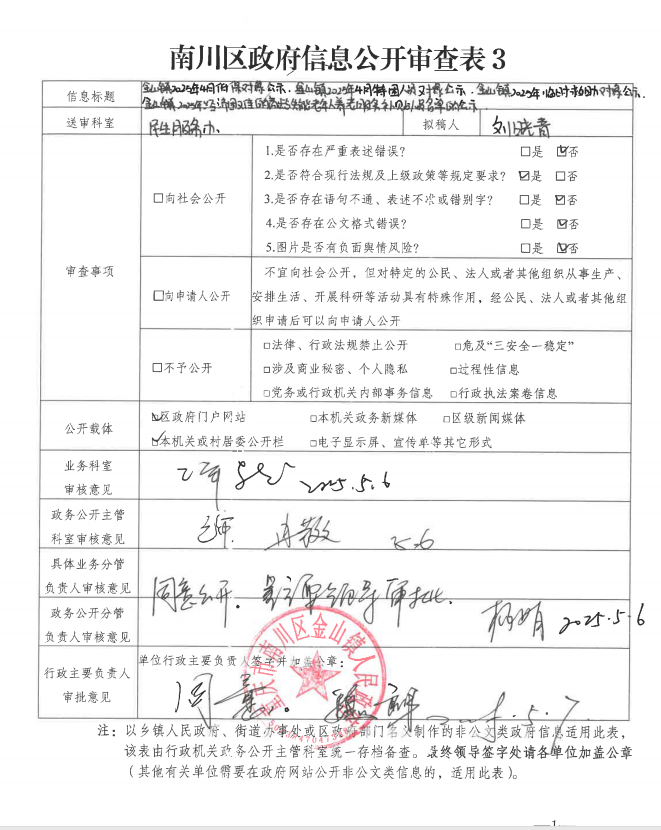 南川区政府信息公开审查表3
信息标题
金山镇2025年4月低保对象公示、金山镇2025年4月特困人员对象公示、金山镇2025年临时救助对象公示、
金山镇2025年经济困难的高龄失能老年人养老服务补贴人员名单的公示.
送审科室 民生服务办 拟稿人 刘晓青
审查事项
□向社会公开
1.是否存在严重表述错误? □是 ☑否
2.是否符合现行法规及上级政策等规定要求? ☑是 □否
3.是否存在语句不通、表述不准或错别字? □是 ☑否
4.是否存在公文格式错误? □是 ☑否
5.图片是否有负面舆情风险? □是 ☑否
□向申请人公开
不宜向社会公开，但对特定的公民、法人或者其他组织从事生产、
安排生活、开展科研等活动具有特殊作用，经公民、法人或者其他组
织申请后可以向申请人公开
□不予公开
□法律、行政法规禁止公开 □危及“三安全一稳定”
□涉及商业秘密、个人隐私 □过程性信息
□党务或行政机关内部事务信息 □行政执法案卷信息
公开载体
☑区政府门户网站 □本机关政务新媒体 □区级新闻媒体
☑本机关或村居委公开栏 □电子显示屏、宣传单等其它形式
业务科室
审核意见
已审 2025.5.6
政务公开主管
科室审核意见
已审 冉敬 5.6
具体业务分管
负责人审核意见
同意公开. 呈主要领导审批.
政务公开分管
负责人审核意见
杨明 2025.5.6
行政主要负责人
审批意见
单位行政主要负责人签字并加盖公章：
同意. 2025.5.7
重庆市南川区金山镇人民政府
注：以乡镇人民政府、街道办事处或区政府部门名义制作的非公文类政府信息适用此表，
该表由行政机关政务公开主管科室统一存档备查。最终领导签字处请各单位加盖公章
（其他有关单位需要在政府网站公开非公文类信息的，适用此表）。
—1